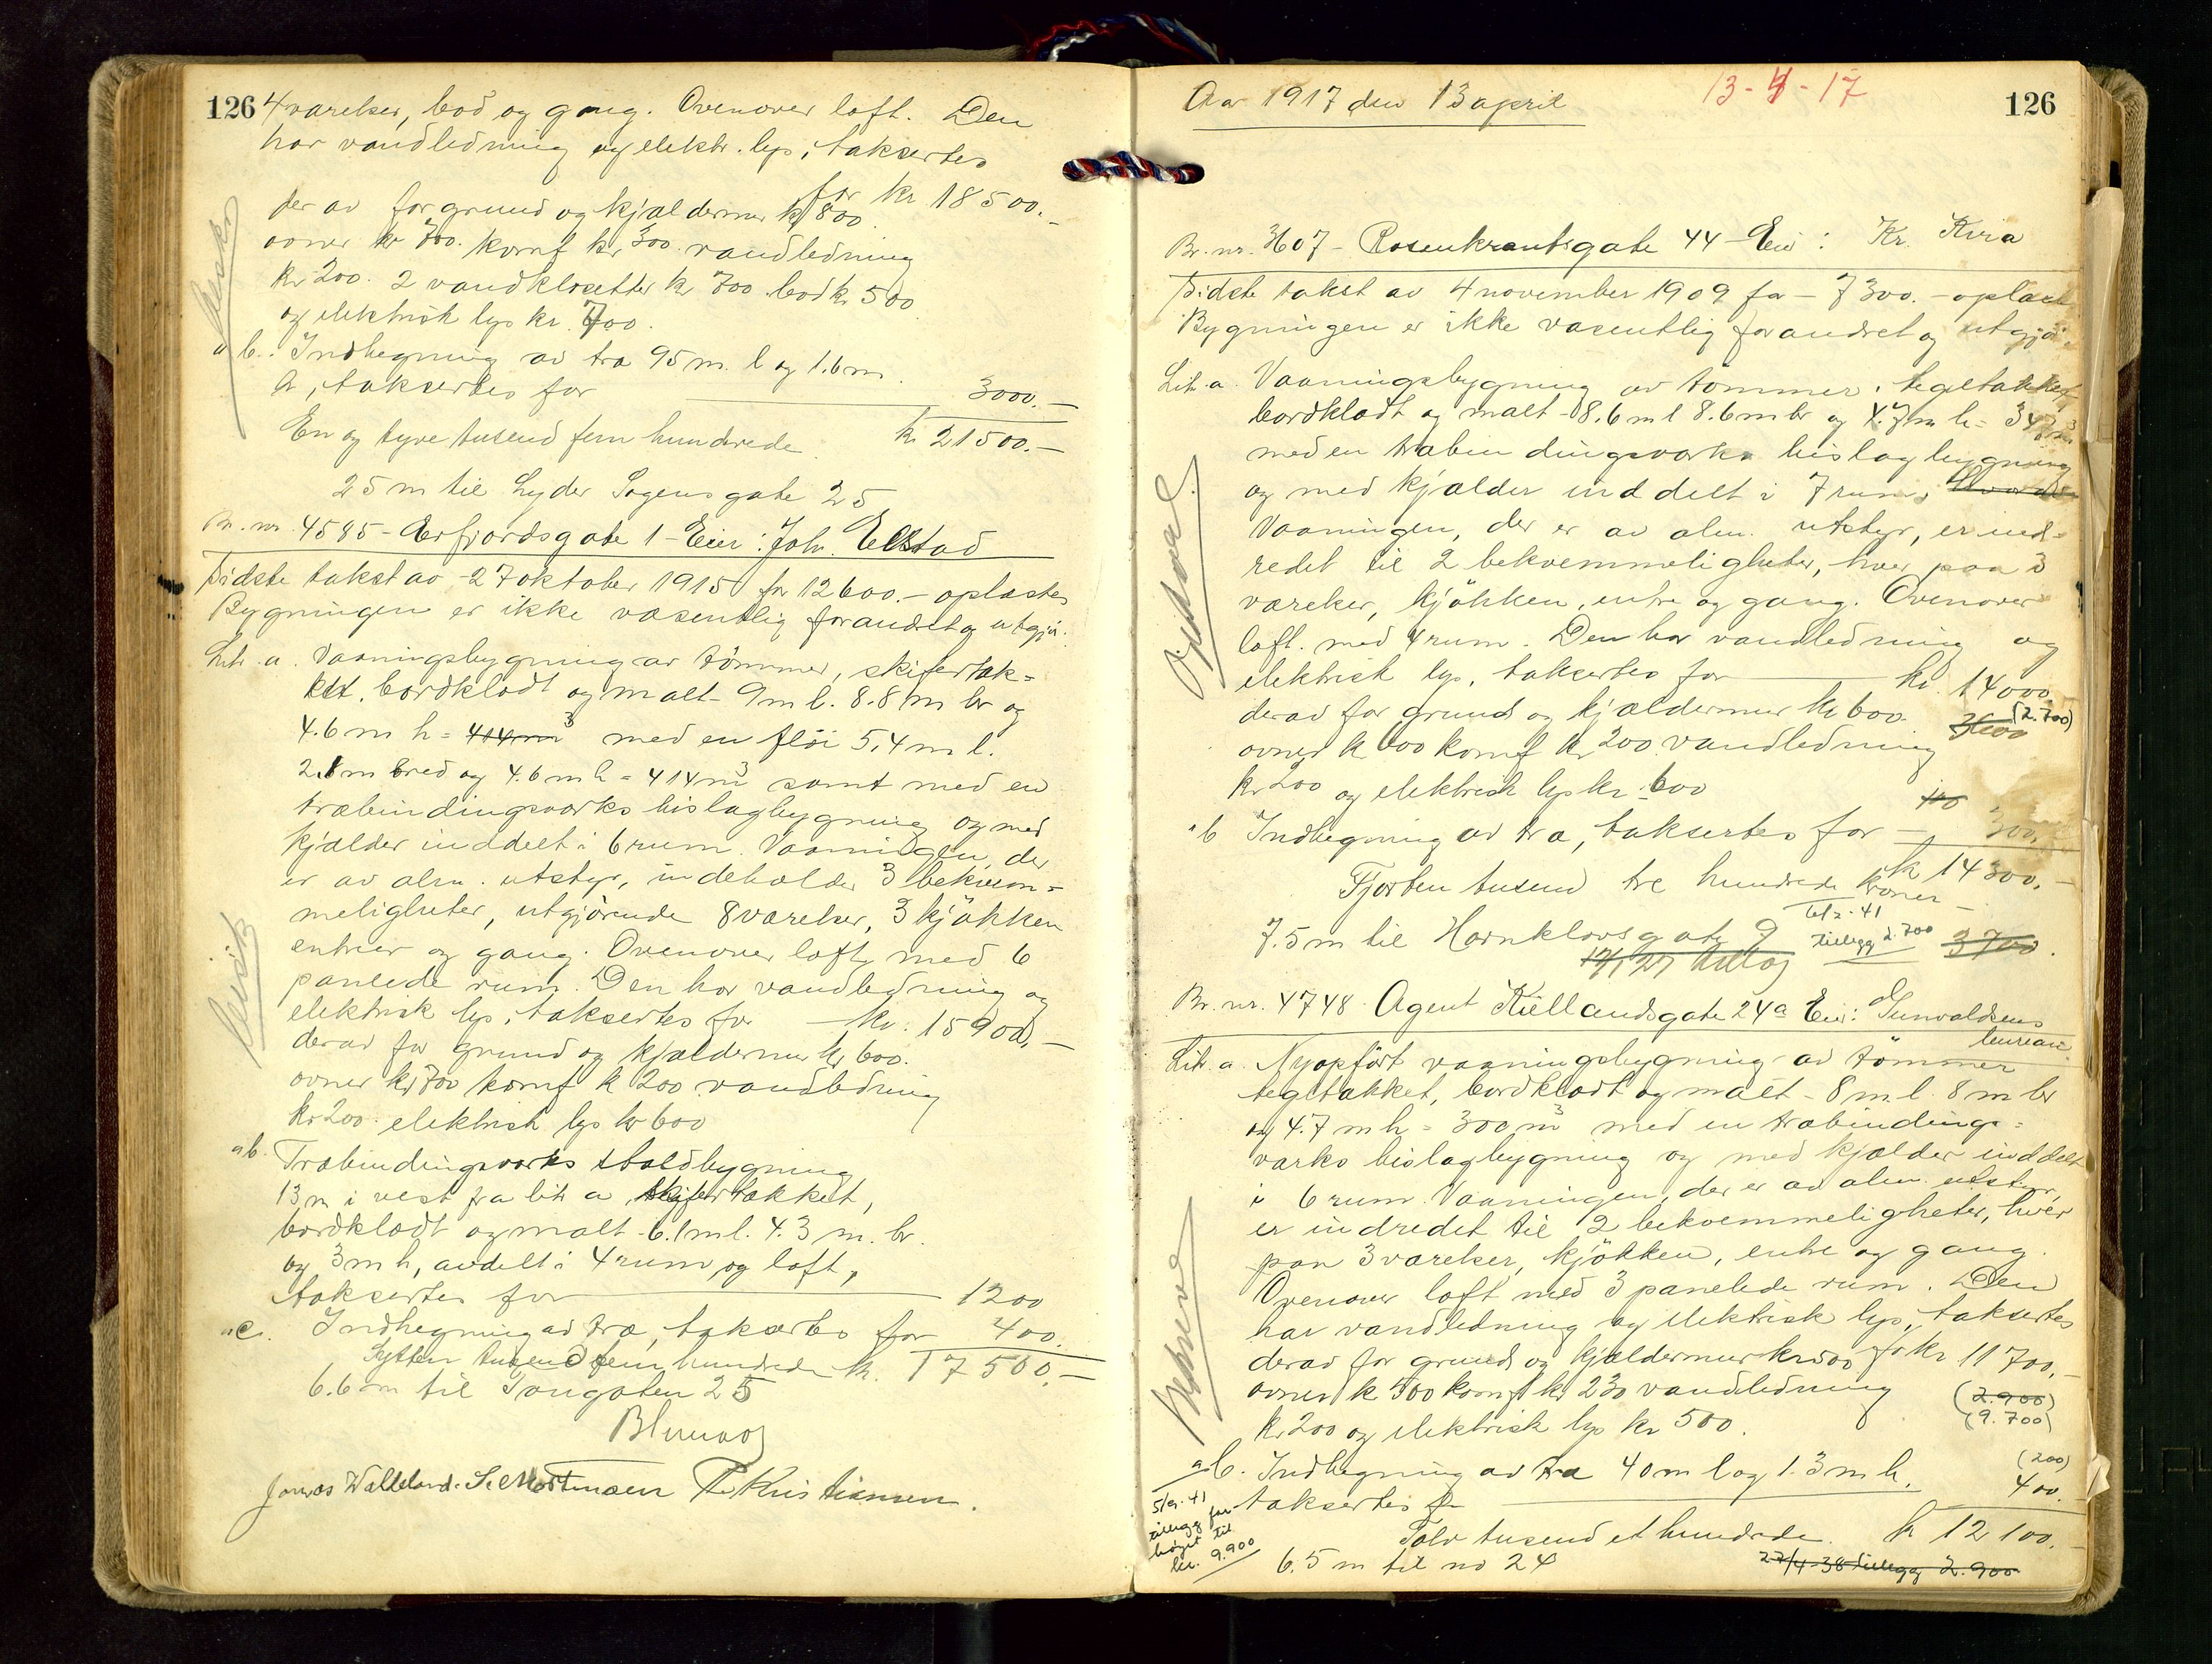 126 4 værelser, bod og gang. Ovenover loft. Den
har vandledning og elektr. lys, takseres
for kr 18500.-
der av for grund og kjældermur kr 800.
ovner kr 700. komf kr 300. vandledning
kr 200. 2 vandklosetter kr 700 bod kr 500
og elektrisk lys kr. 700.
" b. Indhegning av træ 95 m. l og 1.6 m
h, taksertes for 3000.-
En og tyve tusend fem hundrede kr 21500.-
25 m til Lyder Sagensgate 25
Br. nr. 4585 - Erfjordsgate 1 - Eier: Joh. Elstad
Sidste takst av 27 oktober 1915 for 12600.- oplæstes
Bygningen er ikke væsentlig forandret og utgjør:
Litr. a. Vaaningsbygning av tømmer, skifertak=
ket, bordklædt og malt - 9 m l. 8.8 m br og
4.6 m h = 414 m³ med en fløi 5,4 m l.
2.8 m bred og 4.6 m h = 414 m³ samt med en
træbindingsverks bislagbygning og med
kjælder inddelt i 6 rum. Vaaningen, der
er av alm. utstyr, indeholder 3 bekvem=
meligheter, utgjørende 8 værelser, 3 kjøkken
entreer og gang. Ovenover loft med 6
panlede rum. Den har vandledning og
elektrisk lys, taksertes for kr. 15900.-
derav for grund og kjældermur kr 600.
ovner kr 700 komf kr 200 vandledning
kr 200. elektrisk lys kr 600
" b. Træbindingsverks staldbygning
13 m i vest fra litr a, skifertækket,
bordklædt og malt - 6.1 m l. 4.3 m. br.
og 3 m h, avdelt i 4 rum og loft,
taksertes for 1200
" c. Indhegning av træ, taksertes for 400.
Sytten tusend fem hundrede kr. 17500.-
6.6 m til Tangaten 25
Jonas Walleland. S. Mortensen T. Kristiansen.
Aar 1917 den 13 april
13-4-17
126
Br. nr. 3607 - Rosenkrantsgate 44 - Eier: Kr. Kvia
Sidste takst av 4 november 1909 for - 7300. - oplæst
Bygningen er ikke væsentlig forandret og utgjør.
Litr. a. Vaaningsbygning av tømmer, tegltækket
bordklædt og malt - 8.6 m l 8.6 m br og 4.7 m h = 347 m³
med en træbindingsverks bislagbygning
og med kjælder inddelt i 7 rum.
Vaaningen, der er av alm. utstyr, er ind=
redet til 2 bekvemmeligheter, hver paa 3
værelser, kjøkken, entre og gang. Ovenover
loft. med 4 rum. Den har vandledning og
elektrisk lys, taksertes for kr. 14000
derav for grund og kjældermur kr 600. (2.700)
ovner kr 600 komf kr 200 vandledning
kr 200 og elektrisk lys kr. 600
100
" b Indhegning av træ, taksertes for - 300.
Fjorten tusend tre hundrede kroner kr 14300.-
7.5 m til Harnklovsgate 9 tillegg 2.700 3700
Br. nr. 4748. Agent Kiellandsgate 24a Eier: Gunvaldsens
bureau.
Litr. a. Nyopført vaaningsbygning av tømmer
tegltækket, bordklædt og malt - 8 m l 8 m br
og 4.7 m h = 300 m³ med en træbindings=
verks bislagbygning og med kjælder inddelt
i 6 rum. Vaaningen, der er av alm. utstyr,
er indredet til 2 bekvemmeligheter, hver
paa 3 værelser, kjøkken, entre og gang.
Ovenover loft med 3 panelede rum. Den
har vandledning og elektrisk lys, taksertes
derav for grund og kjældermur kr 500 for kr 11700.-
ovner kr 500 komf kr 230 vandledning (2.900)
(9.700)
kr 200 og elektrisk lys kr 500.
" b. Indhegning av træ 40 m l og 1.3 m h. (200)
taksertes for 400.
Tolv tusend et hundrede. kr 12100.-
6.5 m til no 24 27/4-38 tillegg 2.900
5/9.41
tillegg for
høyet til
kr. 9.900